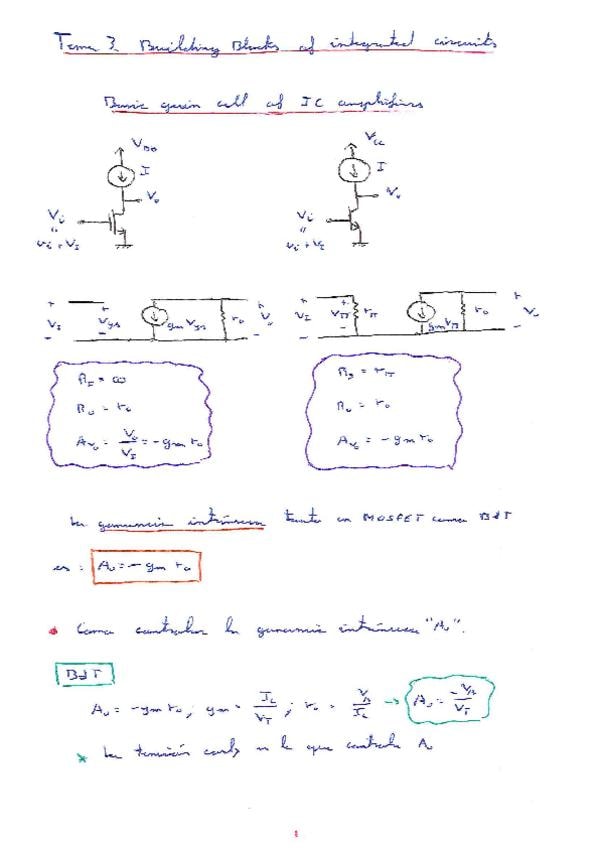 Tema 3. Building Blocks of integrated circuits
Basic gain cell of IC amplifiers
V_DD
V_CC
I
I
V_o
V_o
V_i
V_i
"
"
v_i + V_I
v_i + V_I
+ + gm V_gs r_o +
V_I V_gs V_o
- - -
+ + r_π gm V_π r_o +
V_I V_π V_o
- - -
R_I = ∞
R_o = r_o
A_vo = V_o/V_I = -gm r_o
R_I = r_π
R_o = r_o
A_vo = -gm r_o
La ganancia intrínseca tanto en MOSFET como BJT
es: A_o = -gm r_o
• Como controlar la ganancia intrínseca "A_o".
BJT
A_o = -gm r_o; gm = I_C/V_T; r_o = V_A/I_C → A_o = -V_A/V_T
* La tensión early es la que controla A_o
1